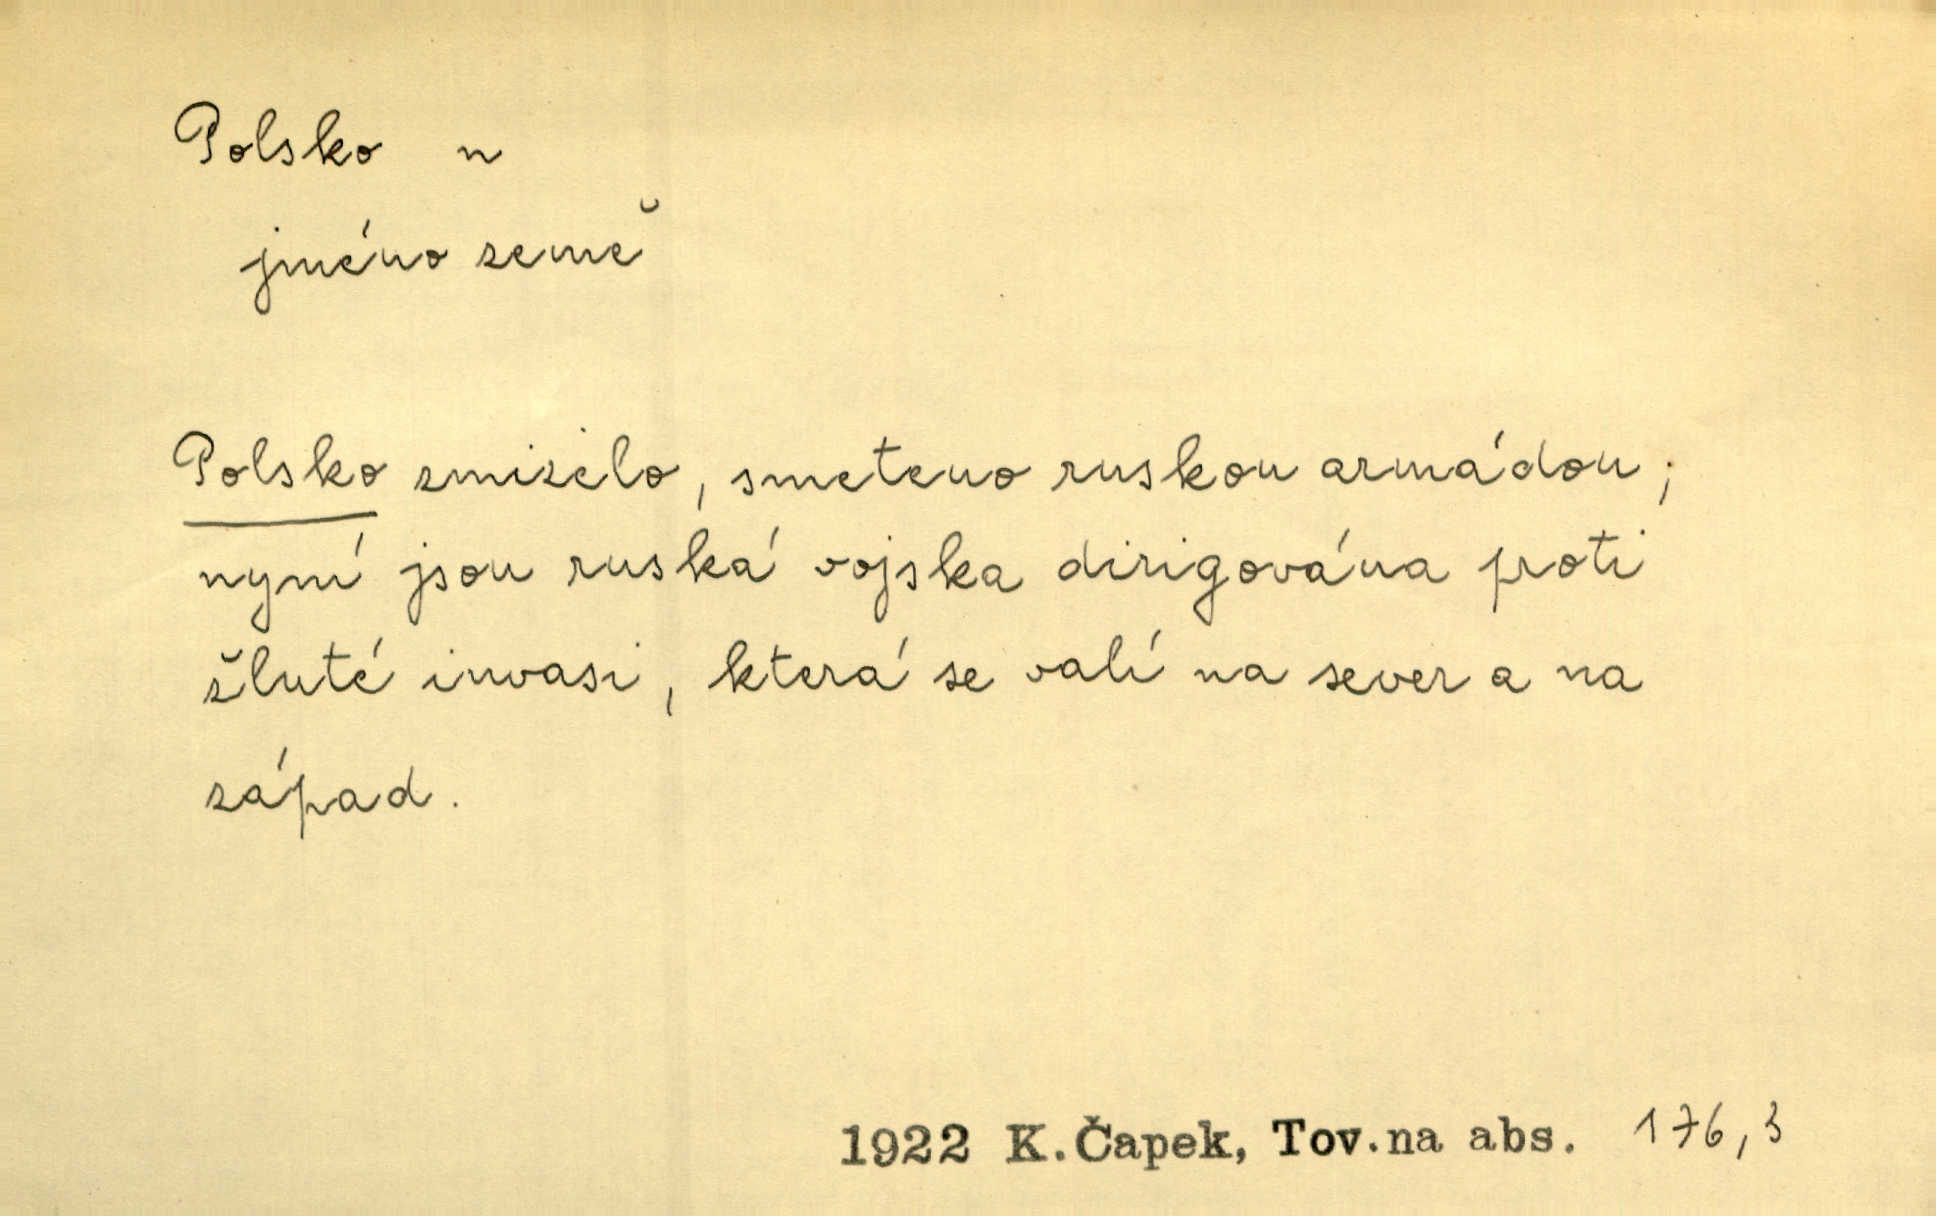 Polsko n
jméno země
Polsko zmizelo, smeteno ruskou armádou;
nyní jsou ruská vojska dirigována proti
žluté invasi, která se valí na sever a na
západ.
1922 K. Čapek, Tov.na abs. 176,3